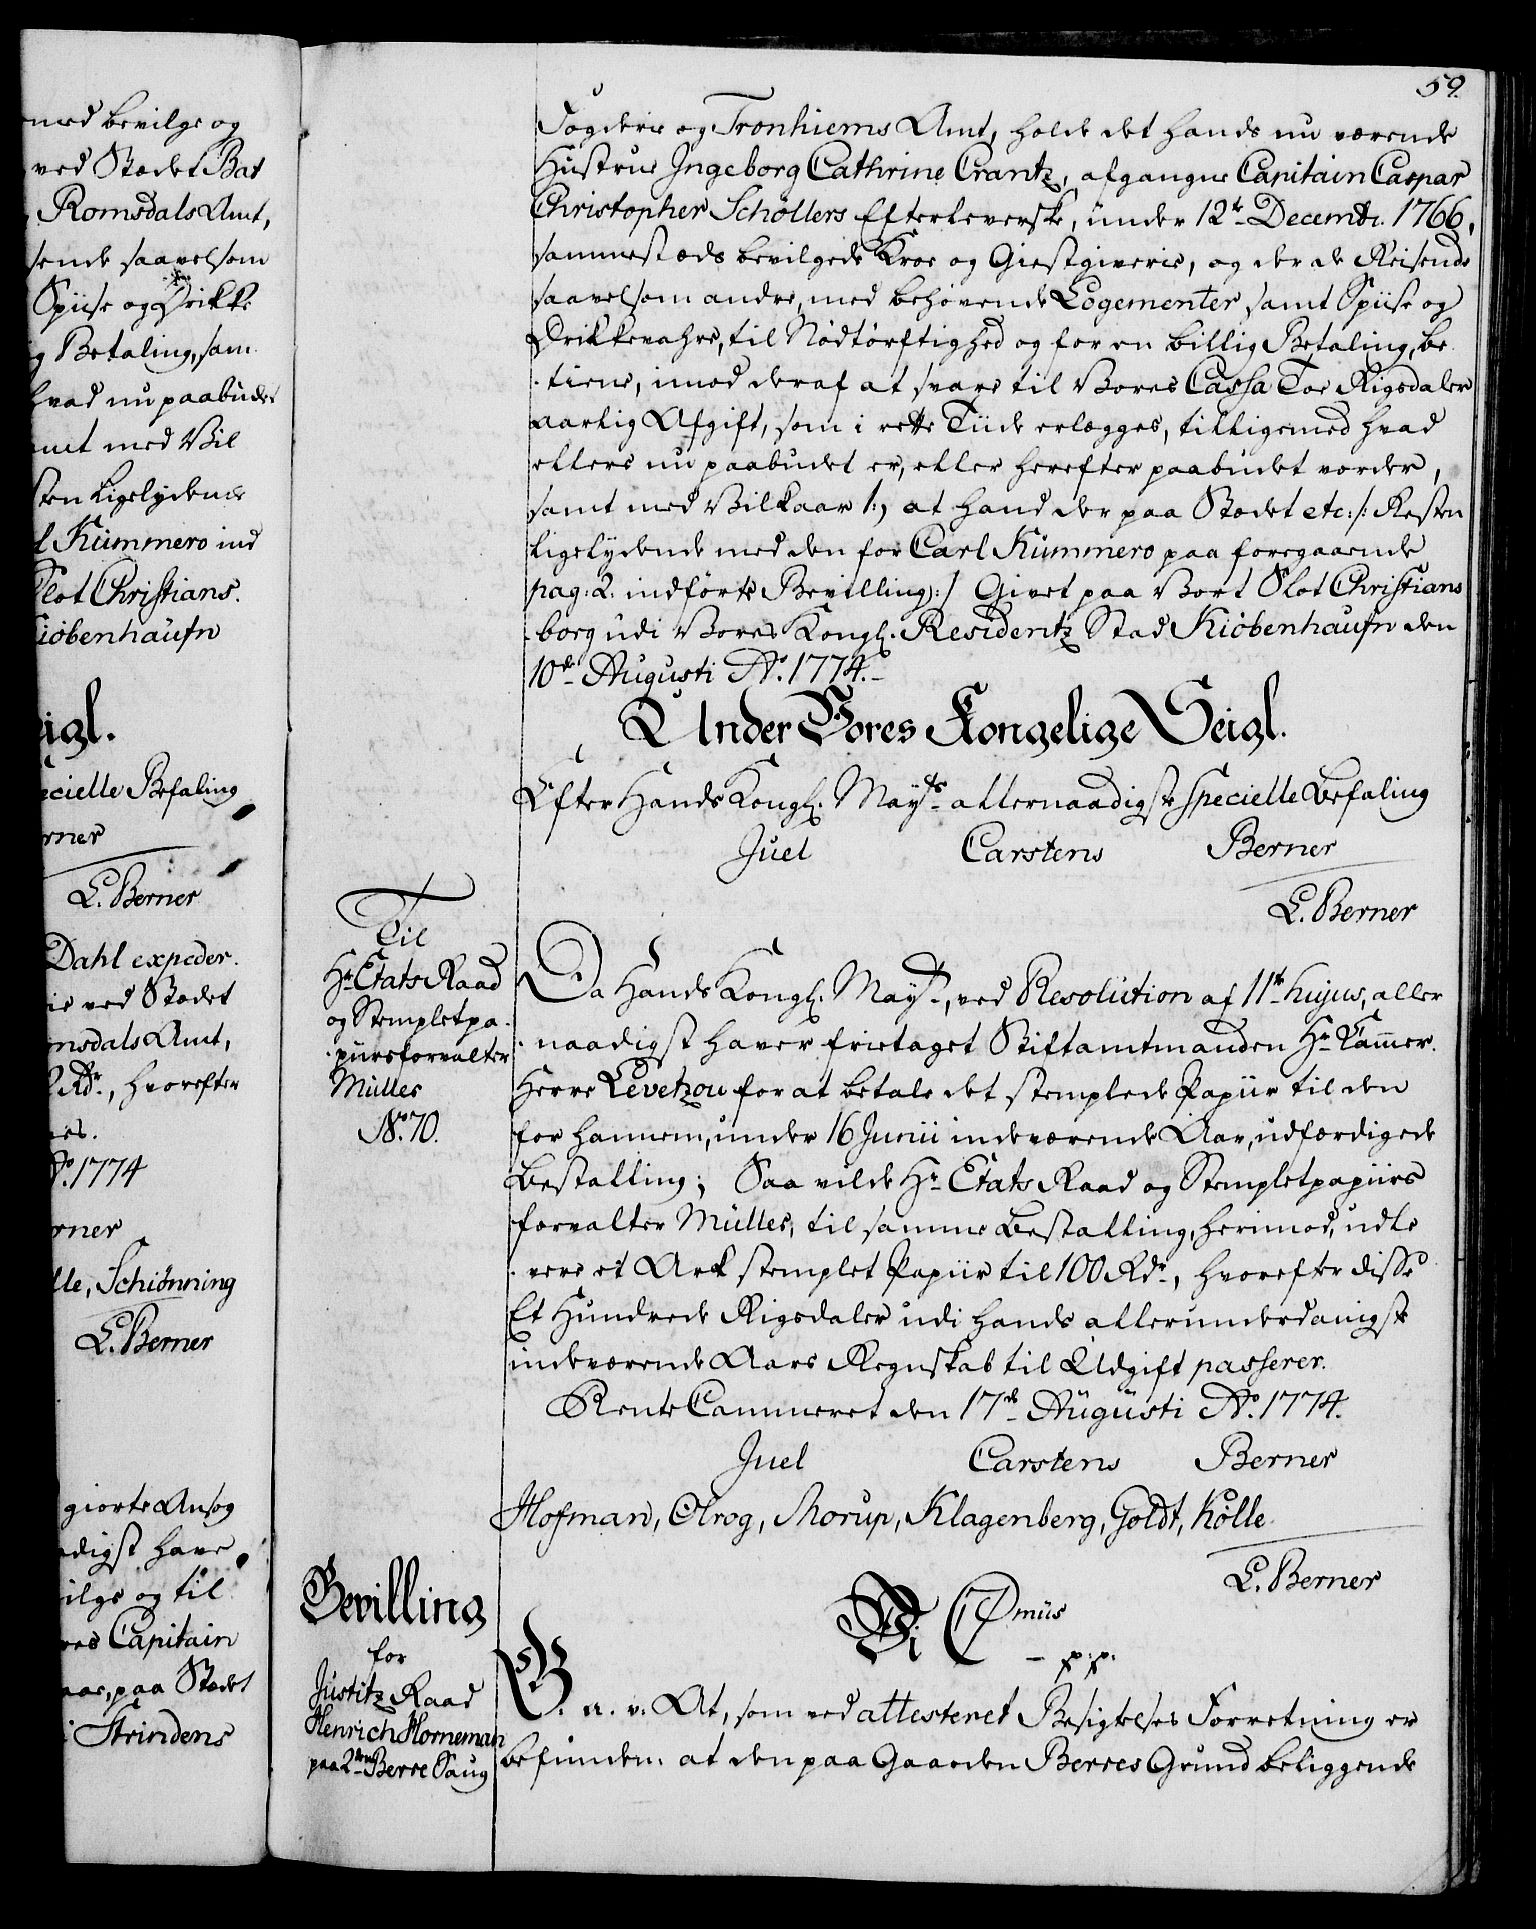 med bevilge og
ved Stædet Bat
Romsdals Amt,
sende saavelsom
Spiise og Drikke
Betaling, sam
hvad nu paabudet
amt med Vil
sten ligelydende
l Kümmero ind
Slot Christians.
Kiöbenhaüfn
eigl.
ecielle Befaling
erner
L. Berner
Dahl expeder.
ie ved Stædet
msdals Amt,
Rdr., hvorefter
Ao. 1774
erner
lle, Schiönning
L. Berner
giorte Ansøg
adigst have
ilge og til
res Capitain
aar, paa Stædet
i Strindens
59.
Fogderie og Tronhiems Amt, holde det hands nu værende
Hustrue Ingeborg Cathrine Crantz, afgangne Capitain Caspar
Christopher Schøllers Efterleverske, under 12te Decembr. 1766,
sammestæds bevilgede Kroe og Giestgiverie, og der de Reisende
saavelsom andre, med behøvende Logementer samt Spiise og
Drikkevahre, til Nødtørftighed og for en billig Betaling, be
tiene, imod deraf at svare til Vores Cassa Toe Rigsdaler
aarlig Afgift, som i rette Tiide erlægges, tilligemed hvad
ellers nu paabudet er, eller herefter paabudet vorder,
samt med Vilkaar 1:, at hand der paa Stædet etc:/: Resten
ligelydende med den for Carl Kümmero paa foregaaende
pag: 2. indførte Bevilling:/ Givet paa Vort Slot Christians
borg udi Vores Kongl. Residentz Stad Kiöbenhaufn den
10de Augusti Ao. 1774.
Under Vores Kongelige Seigl.
Efter Hands Kongl. Mayts. allernaadigste specielle Befaling
Juel Carstens Berner
L. Berner
Til
Hr. Etats Raad
og Stempletpa-
piirsforvalter
Müller
No. 70.
Da Hands Kongl. Mayt., ved Resolution af 11te hujus, aller
naadigst haver frietaget Stiftamtmanden Hr. Kammer-
Herre Levetzou for at betale det stemplede Papiir til den
for hannem, under 16 Junii indeværende Aar, udfærdigede
Bestalling; Saa vilde Hr. Etats Raad og Stempletpapiirs
forvalter Müller, til samme Bestalling, herimod, udle
vere et Ark stemplet Papiir til 100 Rdr., hvorefter disse
Et Hundrede Rigsdaler udi hands allerunderdanigste
indeværende Aars Regnskab til Udgift passerer.
Rente Cammeret den 17de Augusti Ao. 1774.
Juel Carstens Berner
Hofman, Olrog, Morup, Klagenberg, Goldt, Kölle
L. Berner
Bevilling
for
Justitz Raad
Henrich Horneman
paa 2de Berre Saug
Vi C 7mus
p:p.
G. a. v: At, som ved attesteret Besigtelses Forretning er
befunden: at den paa Gaarden Berres Grund beliggende